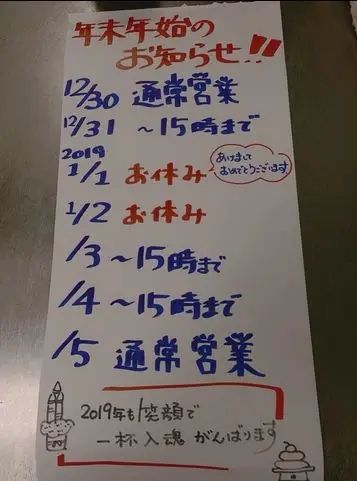 年末年始の
お知らせ!!
12/30 通常営業
12/31 ~15時まで
2019
1/1 お休み
あけまして
おめでとうございます
1/2 お休み
/3 ~15時まで
/4 ~15時まで
/5 通常営業
2019年も笑顔で
一杯入魂 がんばります